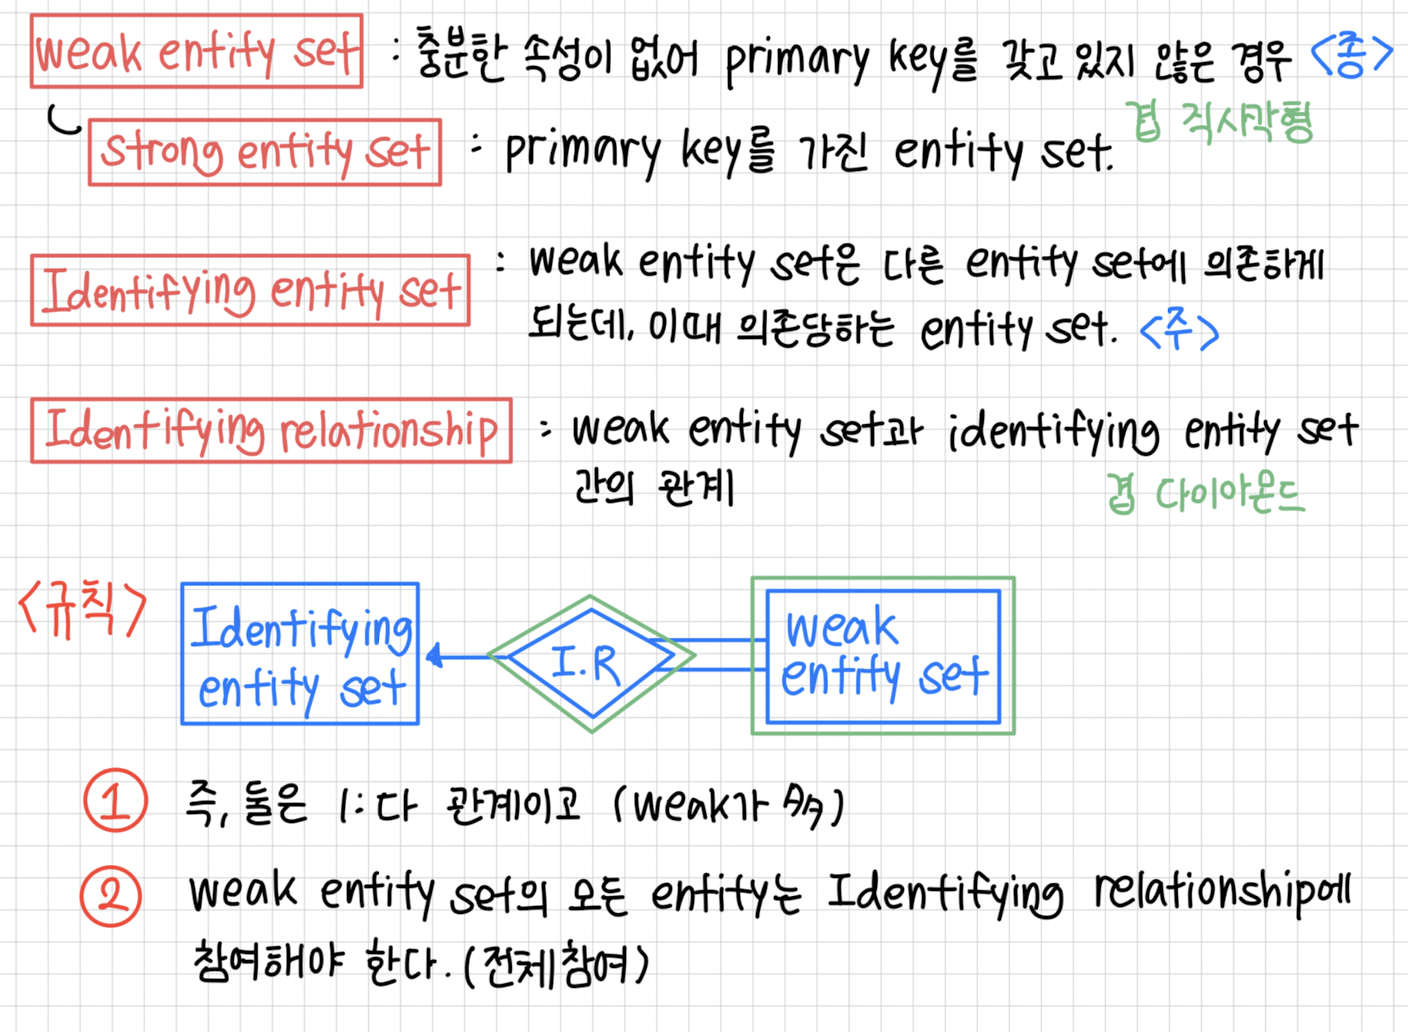 weak entity set : 충분한 속성이 없어 primary key를 갖고 있지 않은 경우 <종>
겹 직사각형
strong entity set : primary key를 가진 entity set.
Identifying entity set : weak entity set은 다른 entity set에 의존하게
되는데, 이때 의존당하는 entity set. <주>
Identifying relationship : weak entity set과 identifying entity set
간의 관계
겹 다이아몬드
<규칙>
Identifying
entity set
I.R
weak
entity set
① 즉, 둘은 1:다 관계이고 (weak가 多)
② weak entity set의 모든 entity는 Identifying relationship에
참여해야 한다. (전체참여)